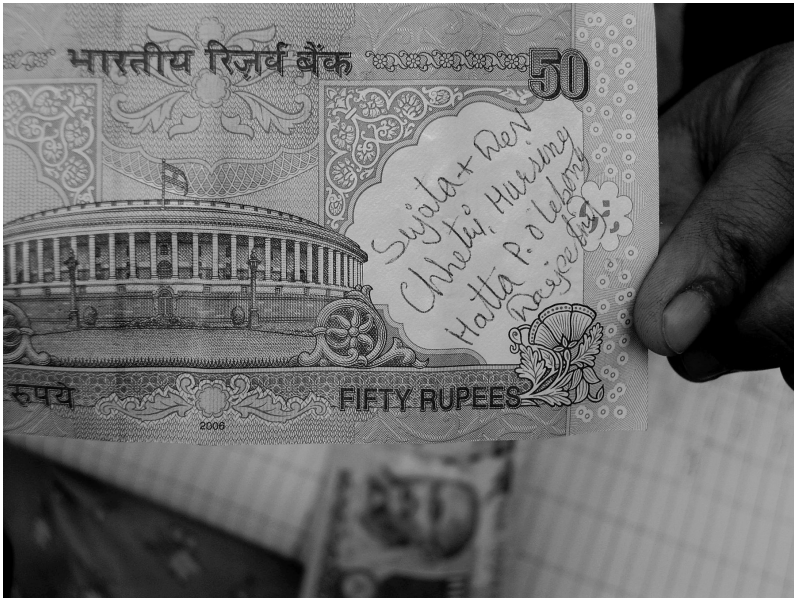 भारतीय रिज़र्व बैंक
50
Sujata + Dev
Chhetri, Nursing
Hatta P.O lebong
Darjeeling
रुपये
FIFTY RUPEES
2006